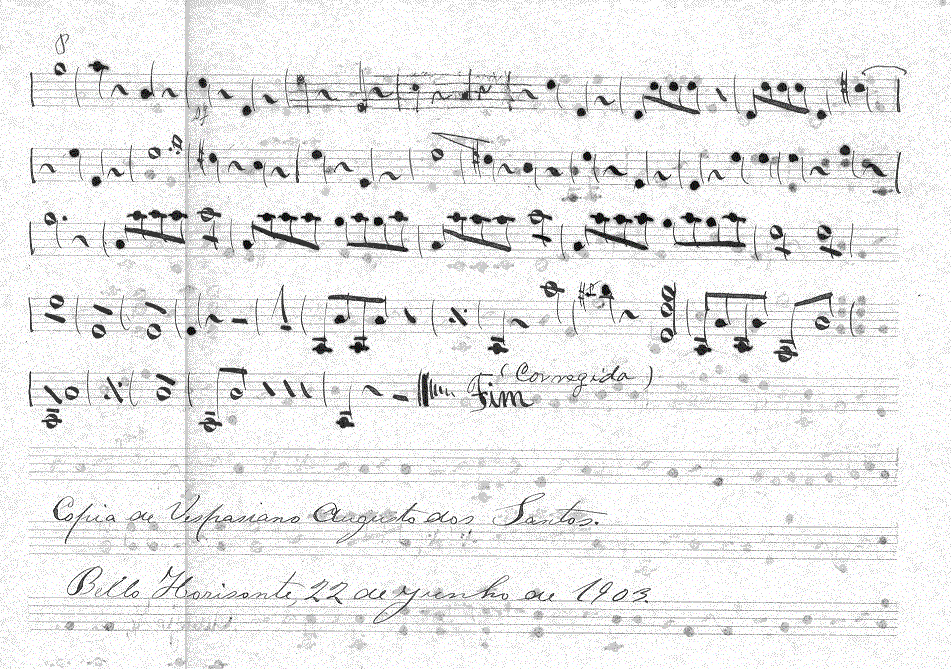 p
ff
(Corregida)
Fim
Copia de Vespasiano Augusto dos Santos.
Bello Horisonte, 22 de junho de 1903